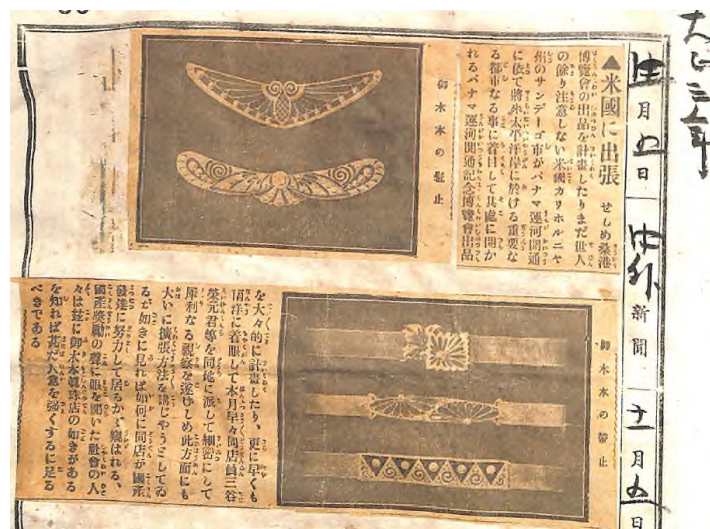 大正三年
月五日
中外新聞
十一月五日
▲米國に出張
せしめ桑港
博覽會の出品を計畫したりまだ世人
の餘り注意しない米國カリホルニヤ
州のサンデーゴ市がパナマ運河開通
に依て將來太平洋岸に於ける重要な
る都市なる事に着目して其處に開か
れるパナマ運河開通記念博覽會出品
御木本の髮止
御木本の帶止
を大々的に計畫したり、更に早くも
南洋に着眼して本月早々同店員三谷
榮元君等を同地に派して細密にして
犀利なる視察を遂げしめ此方面にも
大いに擴張方法を講じやうとしてゐ
るが如きに見れば如何に同店が國產
發達に努力して居るかゞ窺はれる、
國產奬勵の聲に眼を開いた社會の人
々は玆に御木本眞珠店の如きがある
を知れば甚だ人意を强くするに足る
べきである